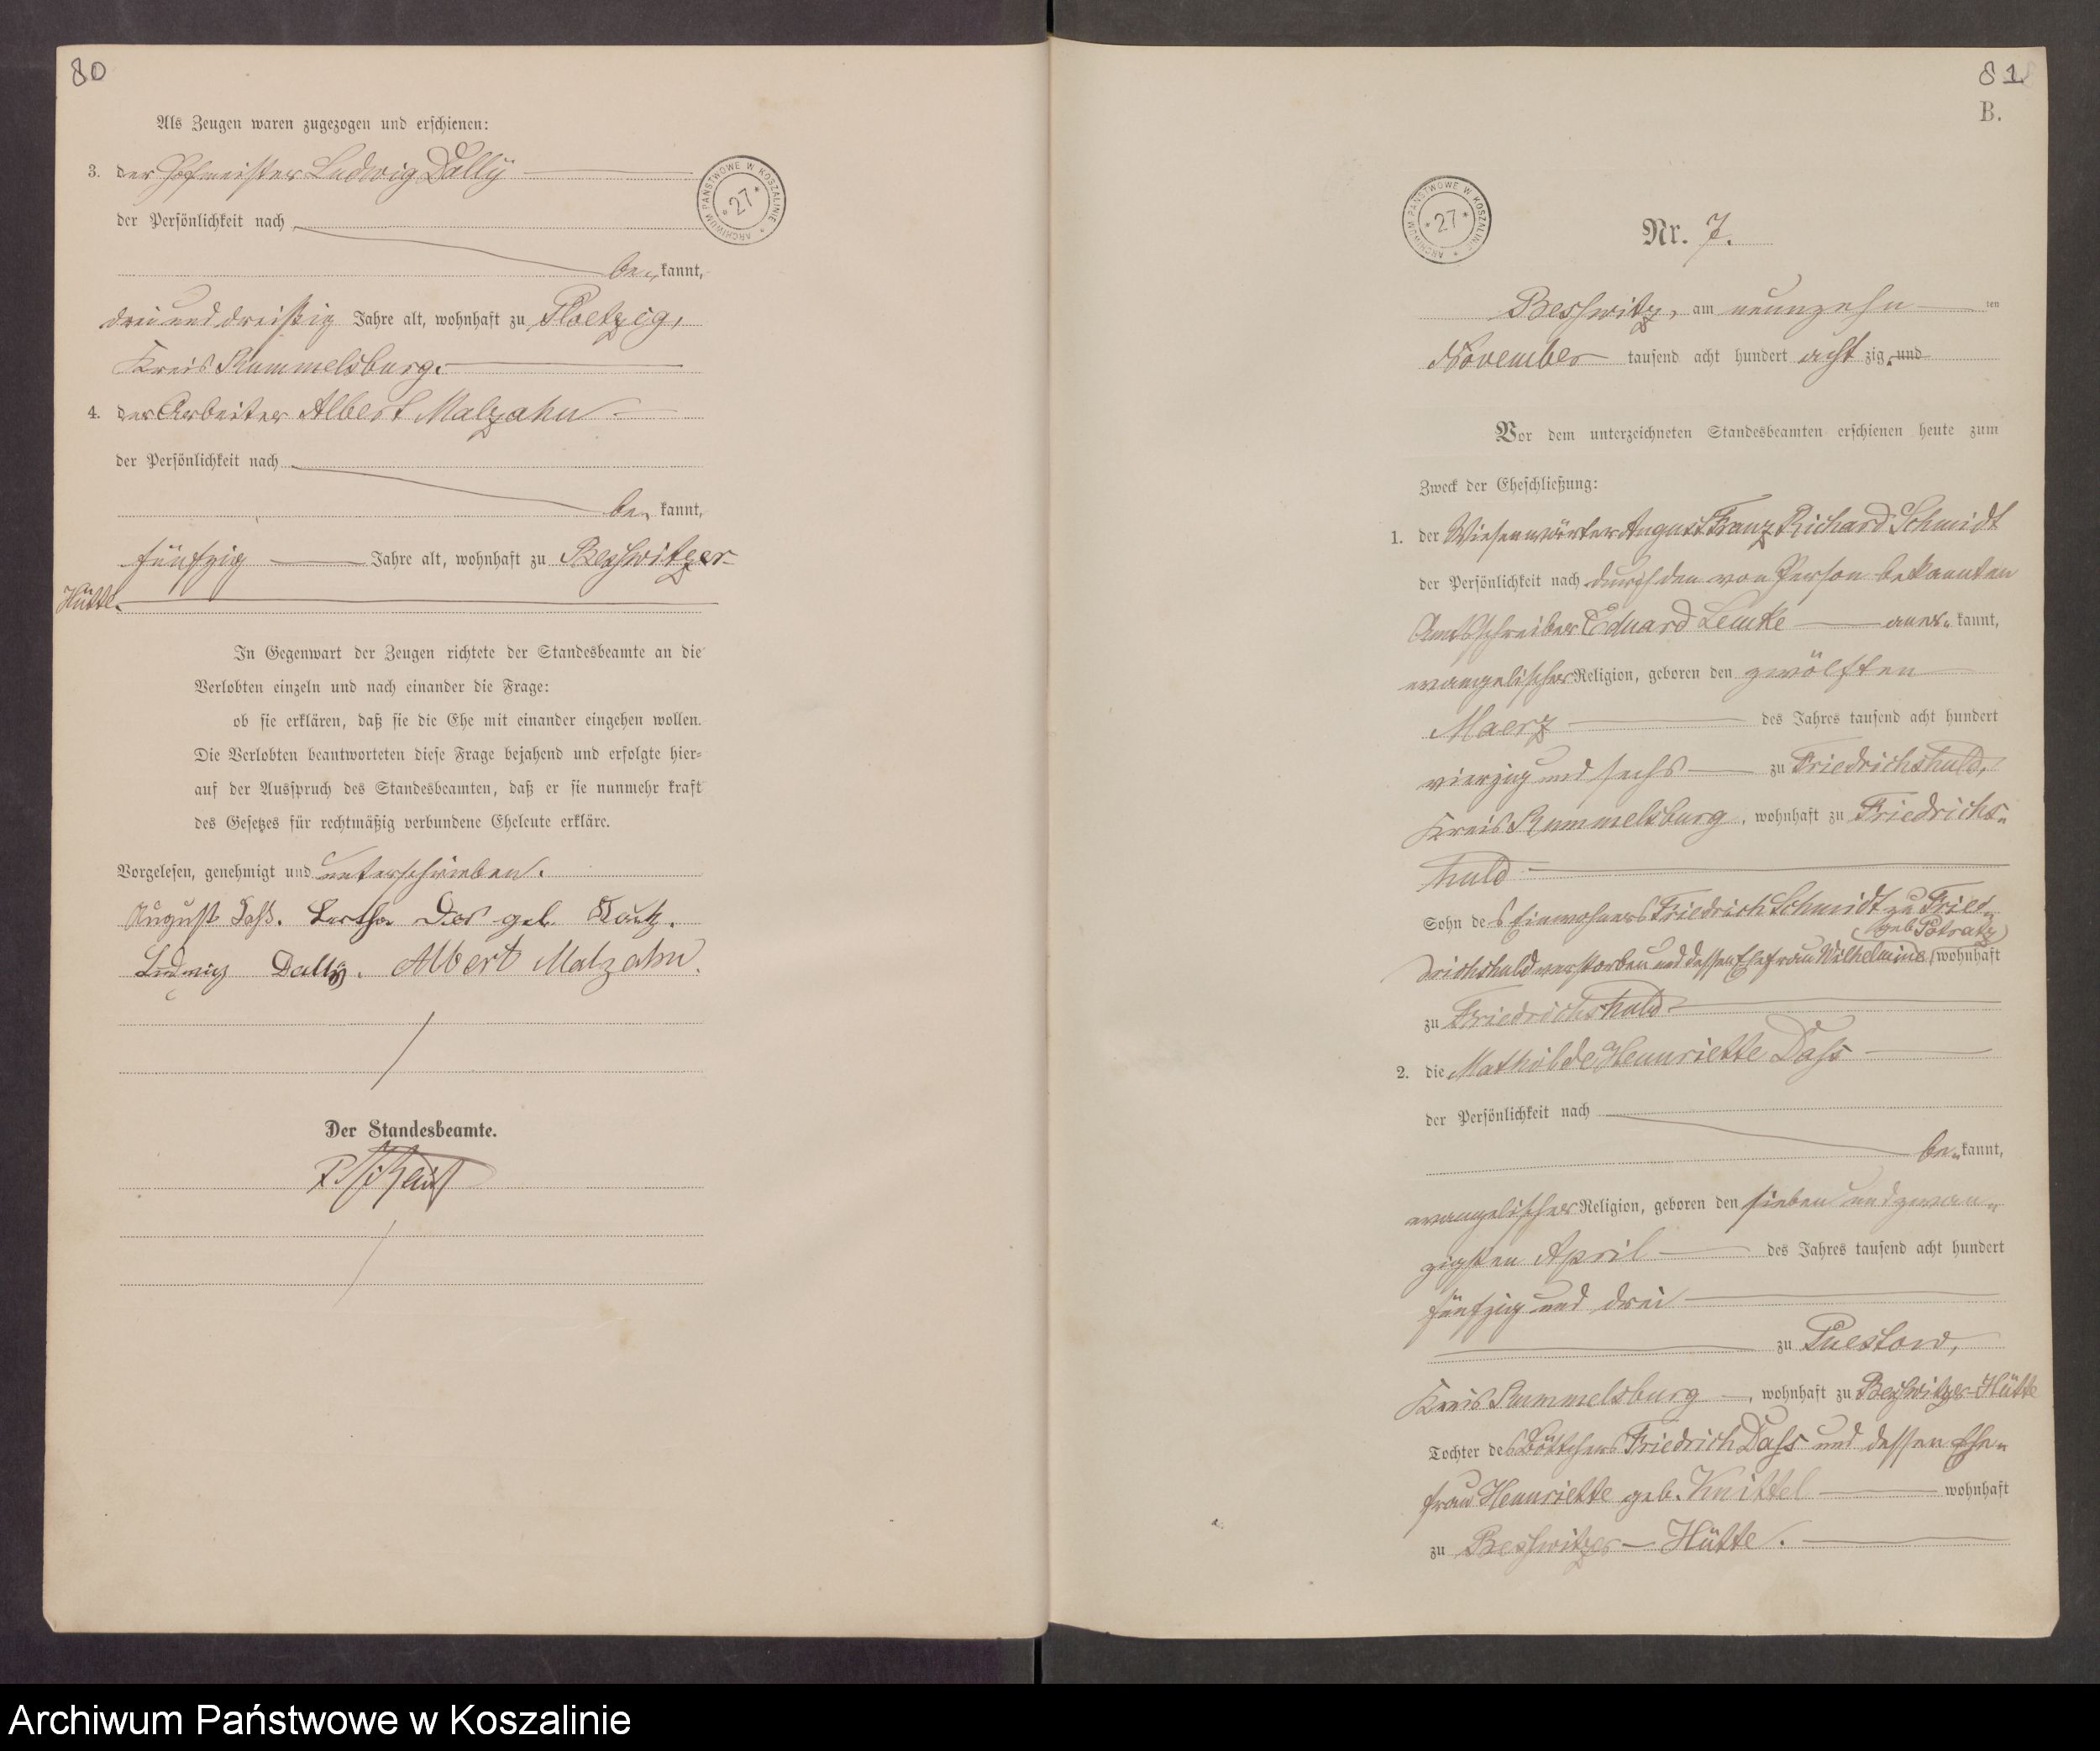 80
Als Zeugen waren zugezogen und erschienen:
3. der Hofmeister Ludwig Dally
der Persönlichkeit nach
be- kannt,
drei und dreißig Jahre alt, wohnhaft zu Ploetzig,
Kreis Rummelsburg.
4. der Arbeiter Albert Malzahn
der Persönlichkeit nach
be- kannt,
fünfzig Jahre alt, wohnhaft zu Beßwitzer-
Hütte.
In Gegenwart der Zeugen richtete der Standesbeamte an die
Verlobten einzeln und nach einander die Frage:
ob sie erklären, daß sie die Ehe mit einander eingehen wollen.
Die Verlobten beantworteten diese Frage bejahend und erfolgte hier-
auf der Ausspruch des Standesbeamten, daß er sie nunmehr kraft
des Gesetzes für rechtmäßig verbundene Eheleute erkläre.
Vorgelesen, genehmigt und unterschrieben.
August Daß. Bertha geb.
Ludwig Dally. Albert Malzahn.
Der Standesbeamte.
ARCHIWUM PAŃSTWOWE W KOSZALINIE * 27 *
81
B.
ARCHIWUM PAŃSTWOWE W KOSZALINIE * 27 *
Nr. 7.
Beßwitz, am neunzehn ten
November tausend acht hundert acht zig und
Vor dem unterzeichneten Standesbeamten erschienen heute zum
Zweck der Eheschließung:
1. der Wiesenwärter August Franz Richard Schmidt
der Persönlichkeit nach durch den von Person bekannten
Amtsschreiber Eduard Lemke aner- kannt,
evangelischer Religion, geboren den zwölften
Maerz des Jahres tausend acht hundert
vierzig und sechs zu Friedrichshuld,
Kreis Rummelsburg, wohnhaft zu Friedrichs-
huld
Sohn des Einwohners Friedrich Schmidt zu Frie-
geb. Potratz
drichshuld verstorben und dessen Ehefrau Wilhelmine wohnhaft
zu Friedrichshuld
2. die Mathilde Hennriette Daß
der Persönlichkeit nach
be- kannt,
evangelischer Religion, geboren den sieben und zwan-
zigsten April des Jahres tausend acht hundert
fünfzig und drei
zu Puestow,
Kreis Rummelsburg, wohnhaft zu Beßwitzer-Hütte
Tochter des Böttchers Friedrich Daß und dessen Ehe-
frau Hennriette geb. Knittel wohnhaft
zu Beßwitzer-Hütte.
Archiwum Państwowe w Koszalinie